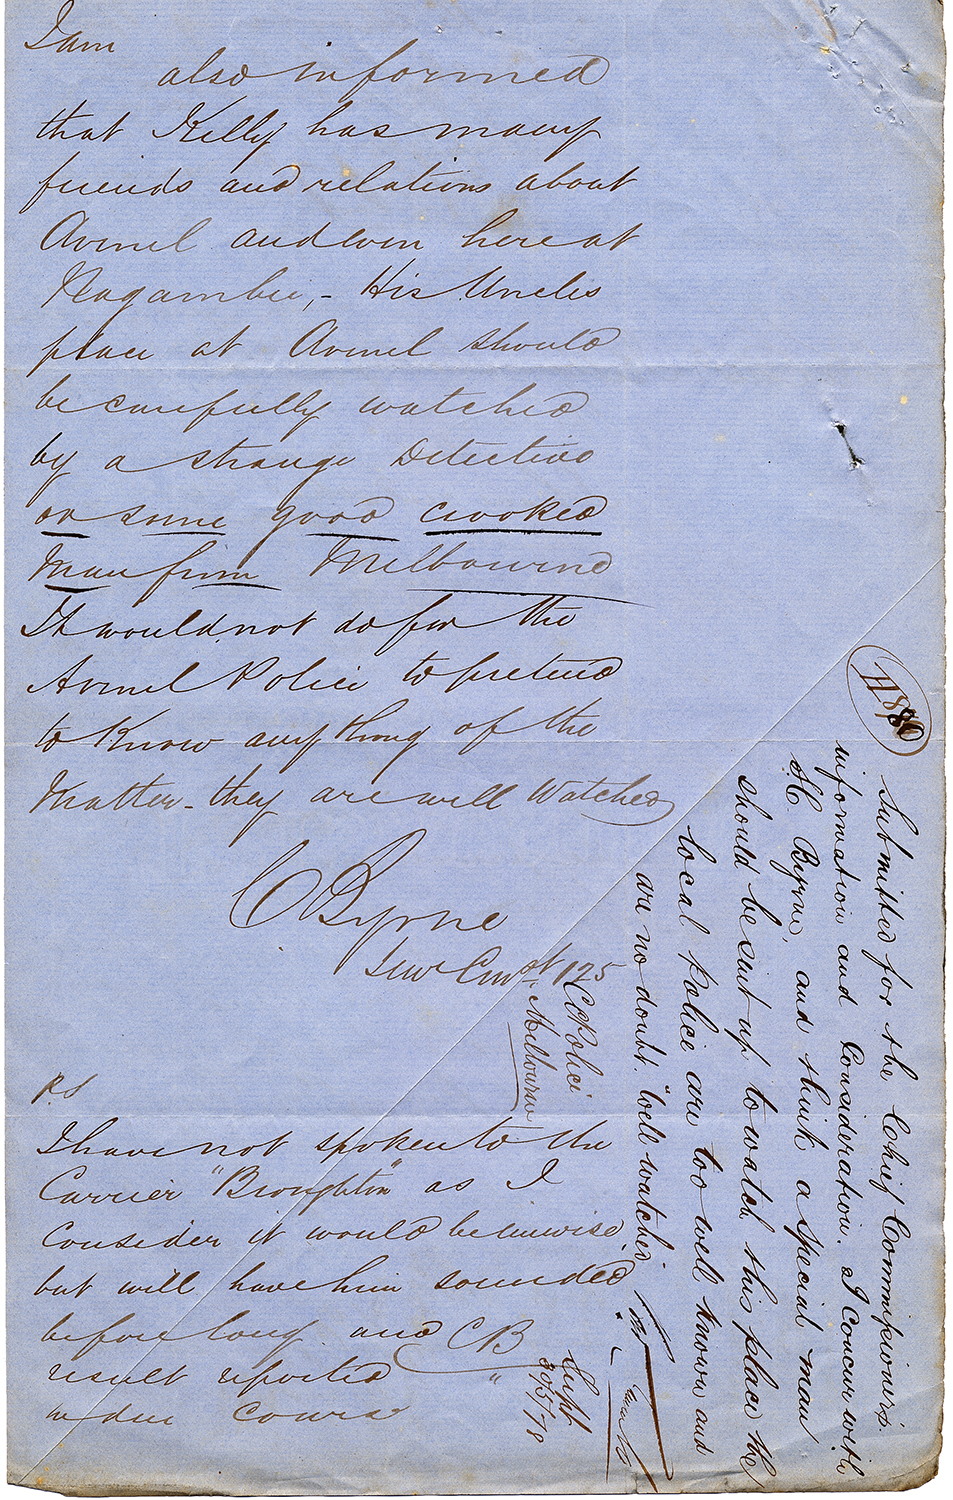 I am
also informed
that Kelly has many
friends and relations about
Avenel and even here at
Nagambie, - His Uncles
place at Avenel should
be carefully watched
by a strange Detective
or some good crooked
Man from Melbourne
It would not do for the
Avenel Police to pretend
to Know anything of the
Matter - they are well Watched
C Byrne
Senr Const 125
P.S
I have not spoken to the
Carrier "Broughton" as I
Consider it would be unwise
but will have him sounded
before long and CB
result reported
in due course
C C Police
Melbourne
Submitted for the Chief Commissioner's
information and Consideration. I Concur with
Byrne, and think a special man
should be sent up to watch this place the
local Police are too well known and
are no doubt "Well watched"
Supt
30/5/78